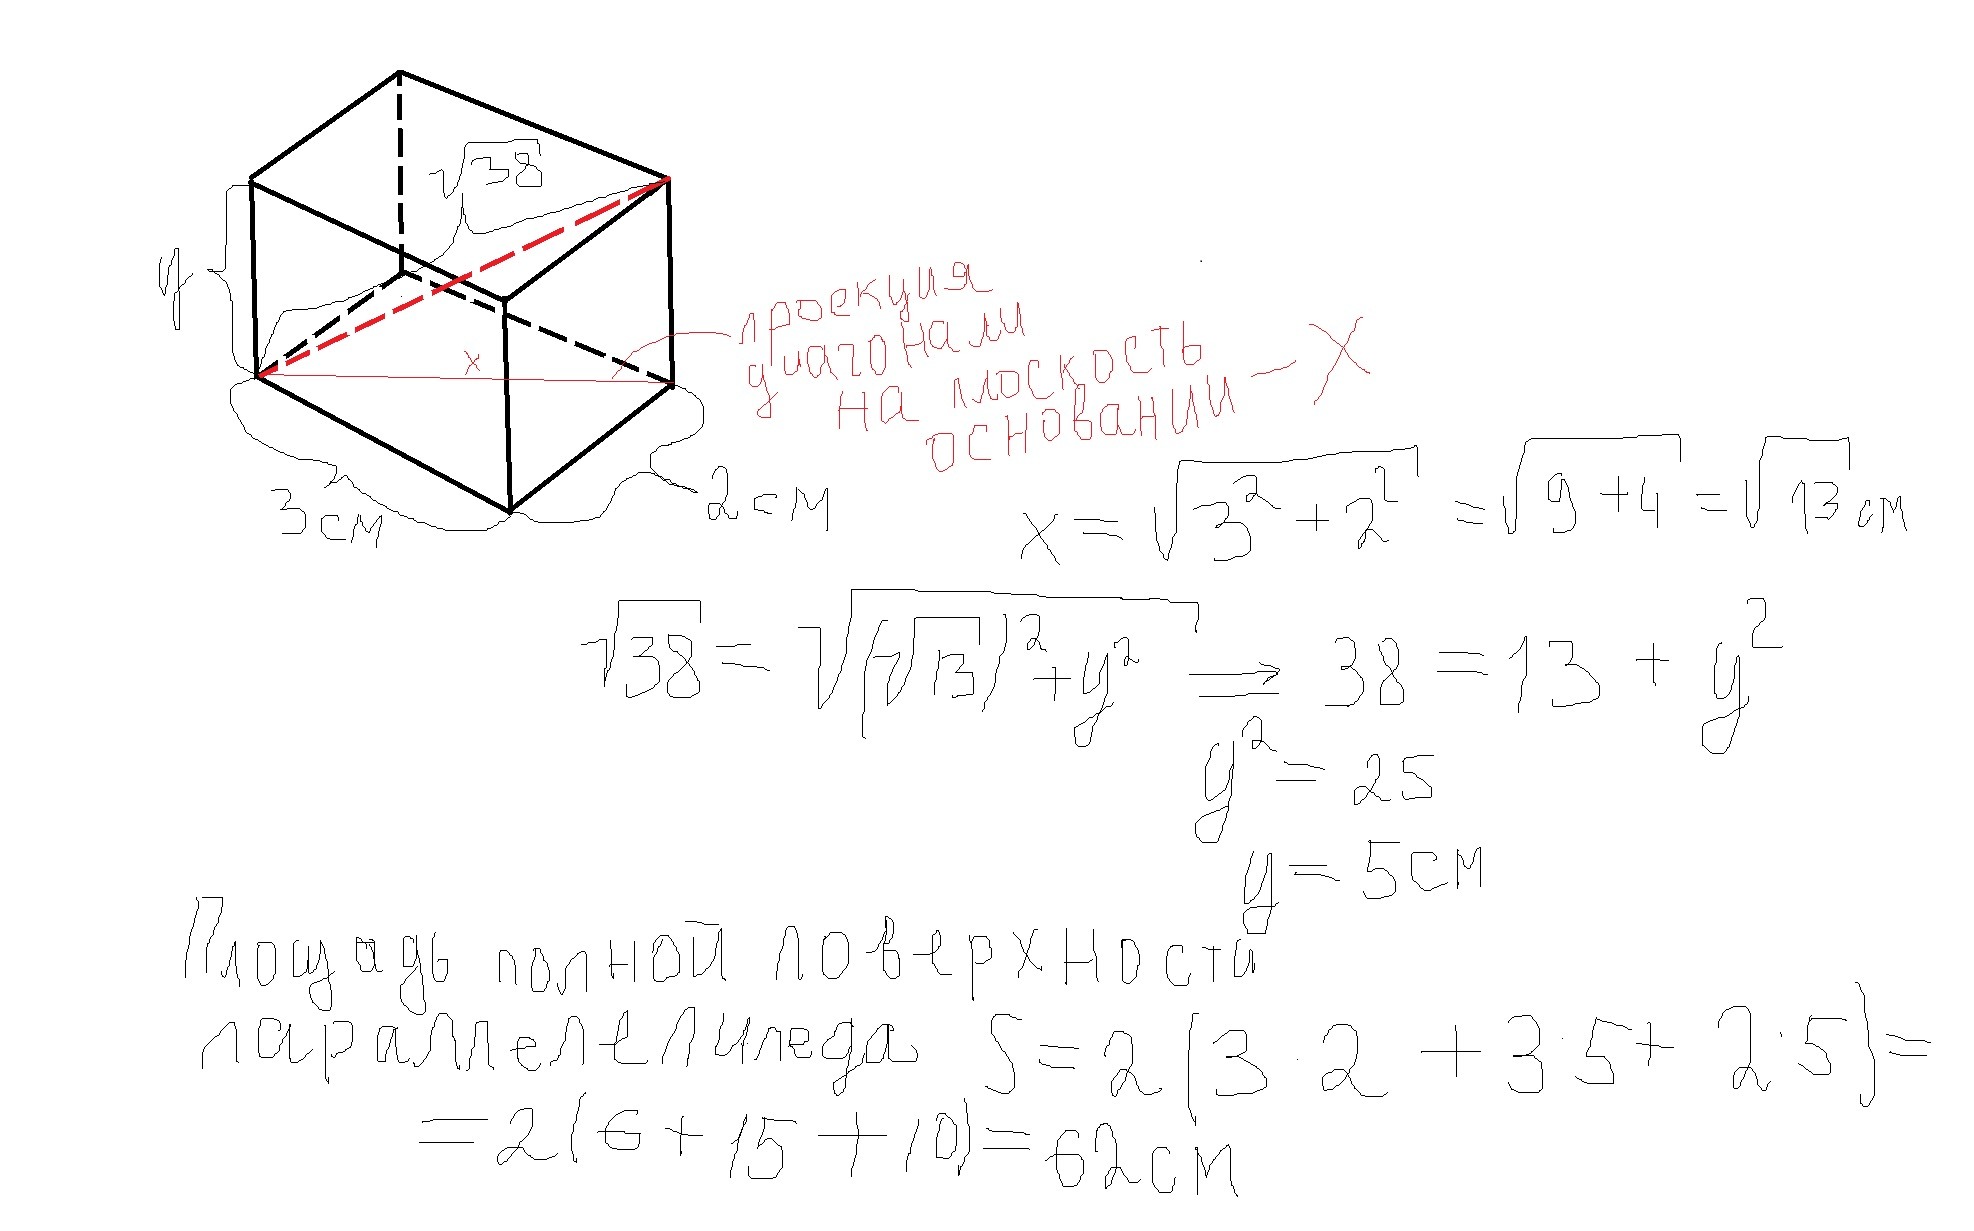 √38
y
x
проекция
диагонали
на плоскость
основании — x
3см
2см
x = √(3² + 2²) = √(9 + 4) = √13 см
√38 = √((√13)² + y²) ⇒ 38 = 13 + y²
y² = 25
y = 5см
Площадь полной поверхности
параллелепипеда S = 2(3·2 + 3·5 + 2·5) =
= 2(6 + 15 + 10) = 62см